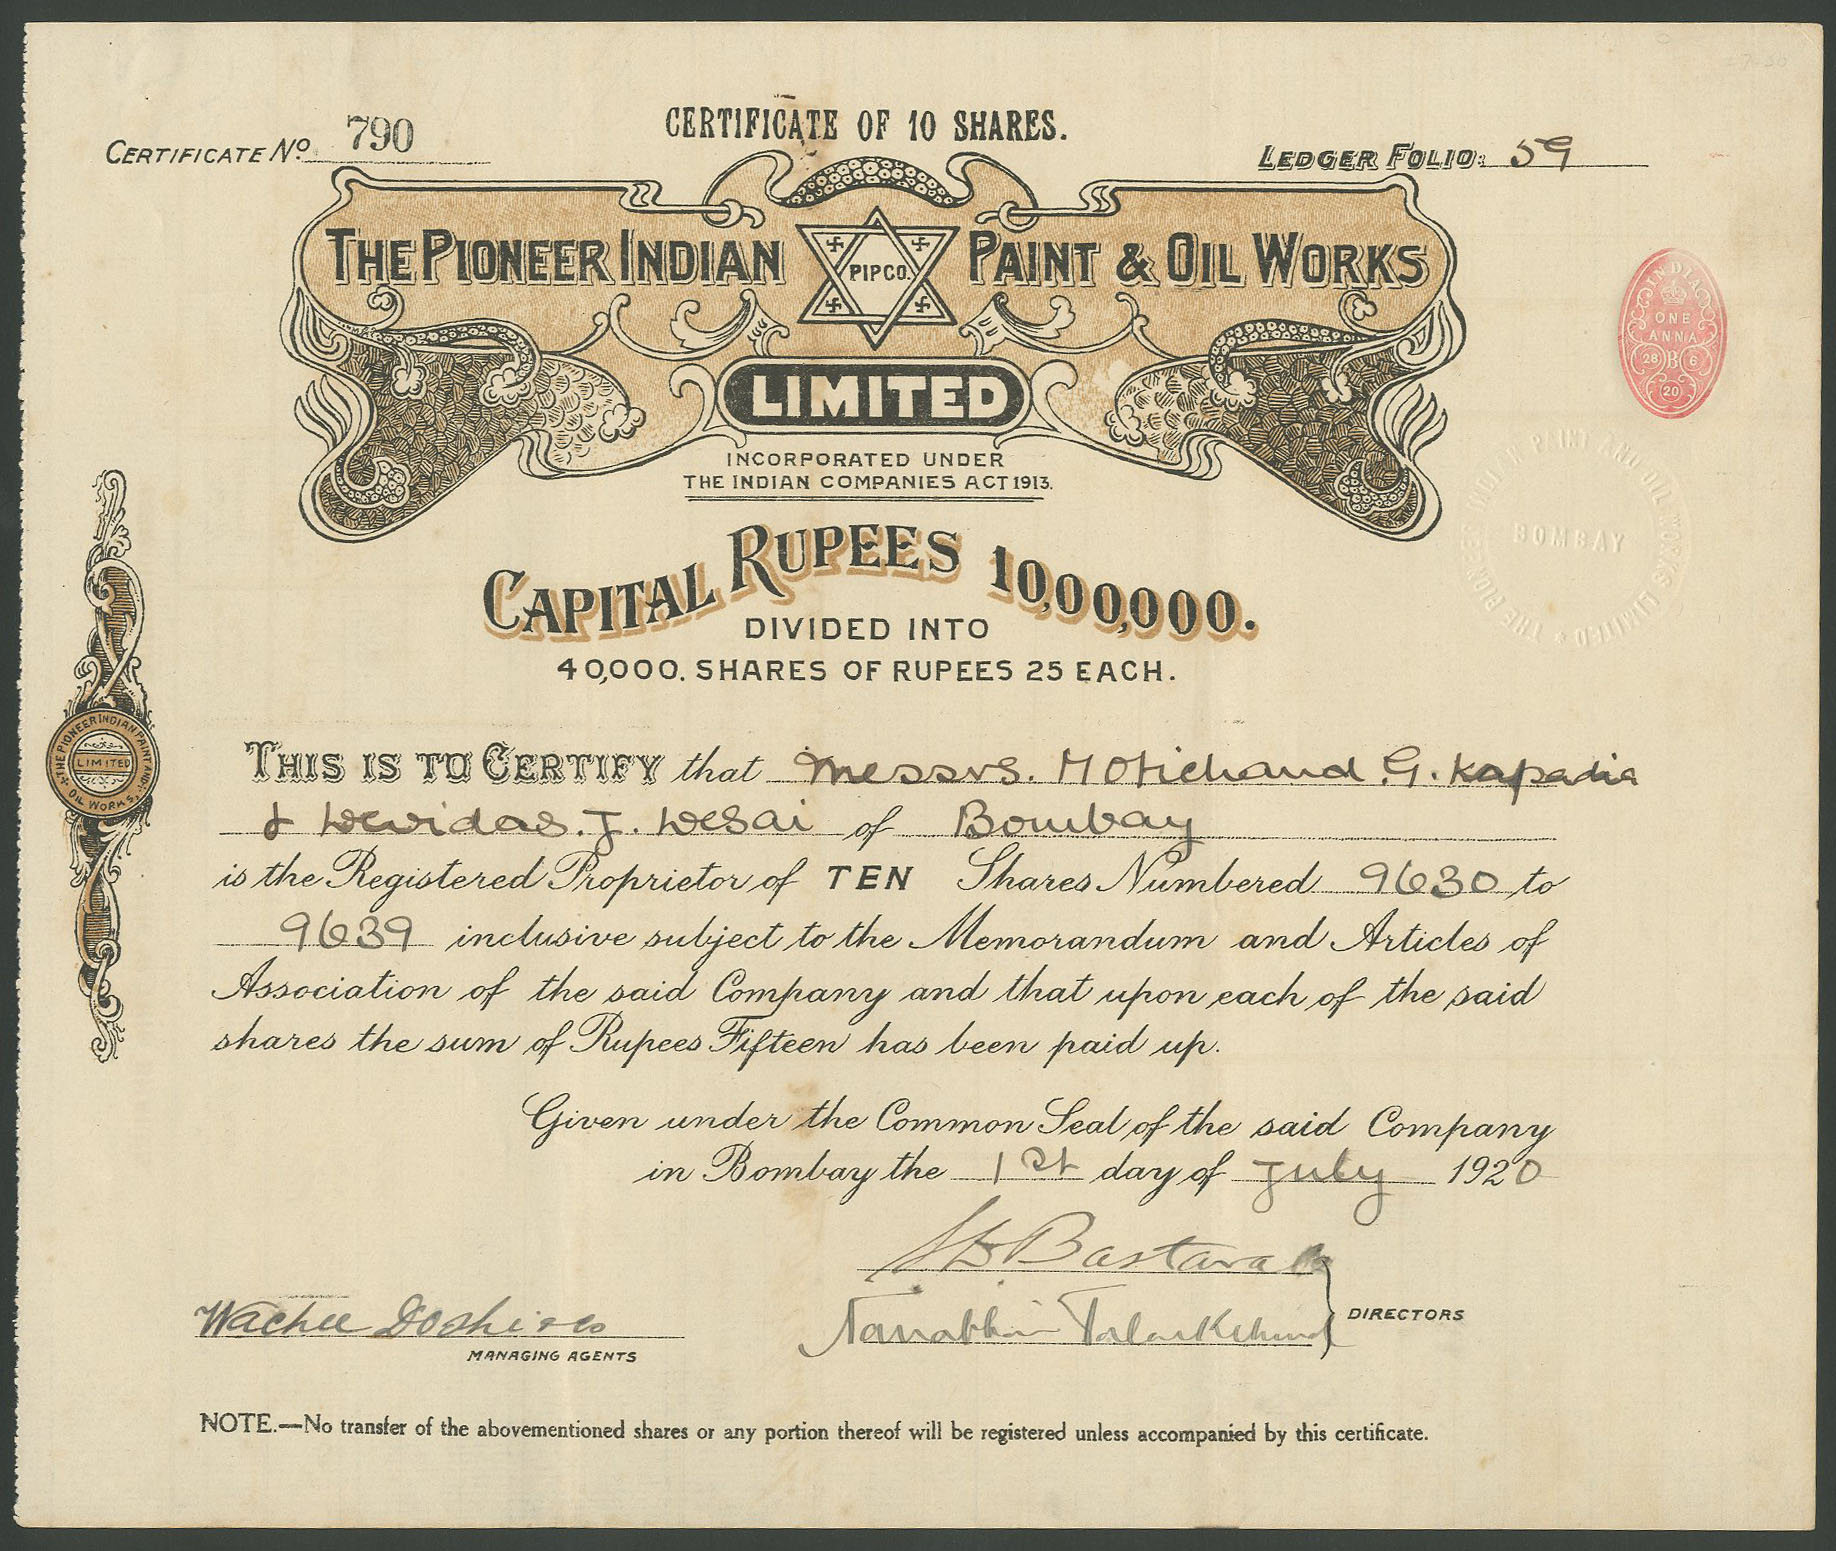 CERTIFICATE OF 10 SHARES.
CERTIFICATE No. 790
LEDGER FOLIO: 59
THE PIONEER INDIAN PAINT & OIL WORKS
PIPCO.
LIMITED
INCORPORATED UNDER
THE INDIAN COMPANIES ACT 1913.
INDIA
ONE
ANNA
28 B 6
20
THE PIONEER INDIAN PAINT AND OIL WORKS LIMITED
BOMBAY
CAPITAL RUPEES 10,00,000.
DIVIDED INTO
40,000. SHARES OF RUPEES 25 EACH.
THE PIONEER INDIAN PAINT AND OIL WORKS,
LIMITED
THIS IS TO CERTIFY that Messrs. Motichand. G. Kapadia
& Devidas. J. Desai of Bombay
is the Registered Proprietor of TEN Shares Numbered 9630 to
9639 inclusive subject to the Memorandum and Articles of
Association of the said Company and that upon each of the said
shares the sum of Rupees Fifteen has been paid up.
Given under the Common Seal of the said Company
in Bombay the 1st day of July 1920
Bastavala
DIRECTORS
Wachee Doshi & Co
MANAGING AGENTS
NOTE.—No transfer of the abovementioned shares or any portion thereof will be registered unless accompanied by this certificate.